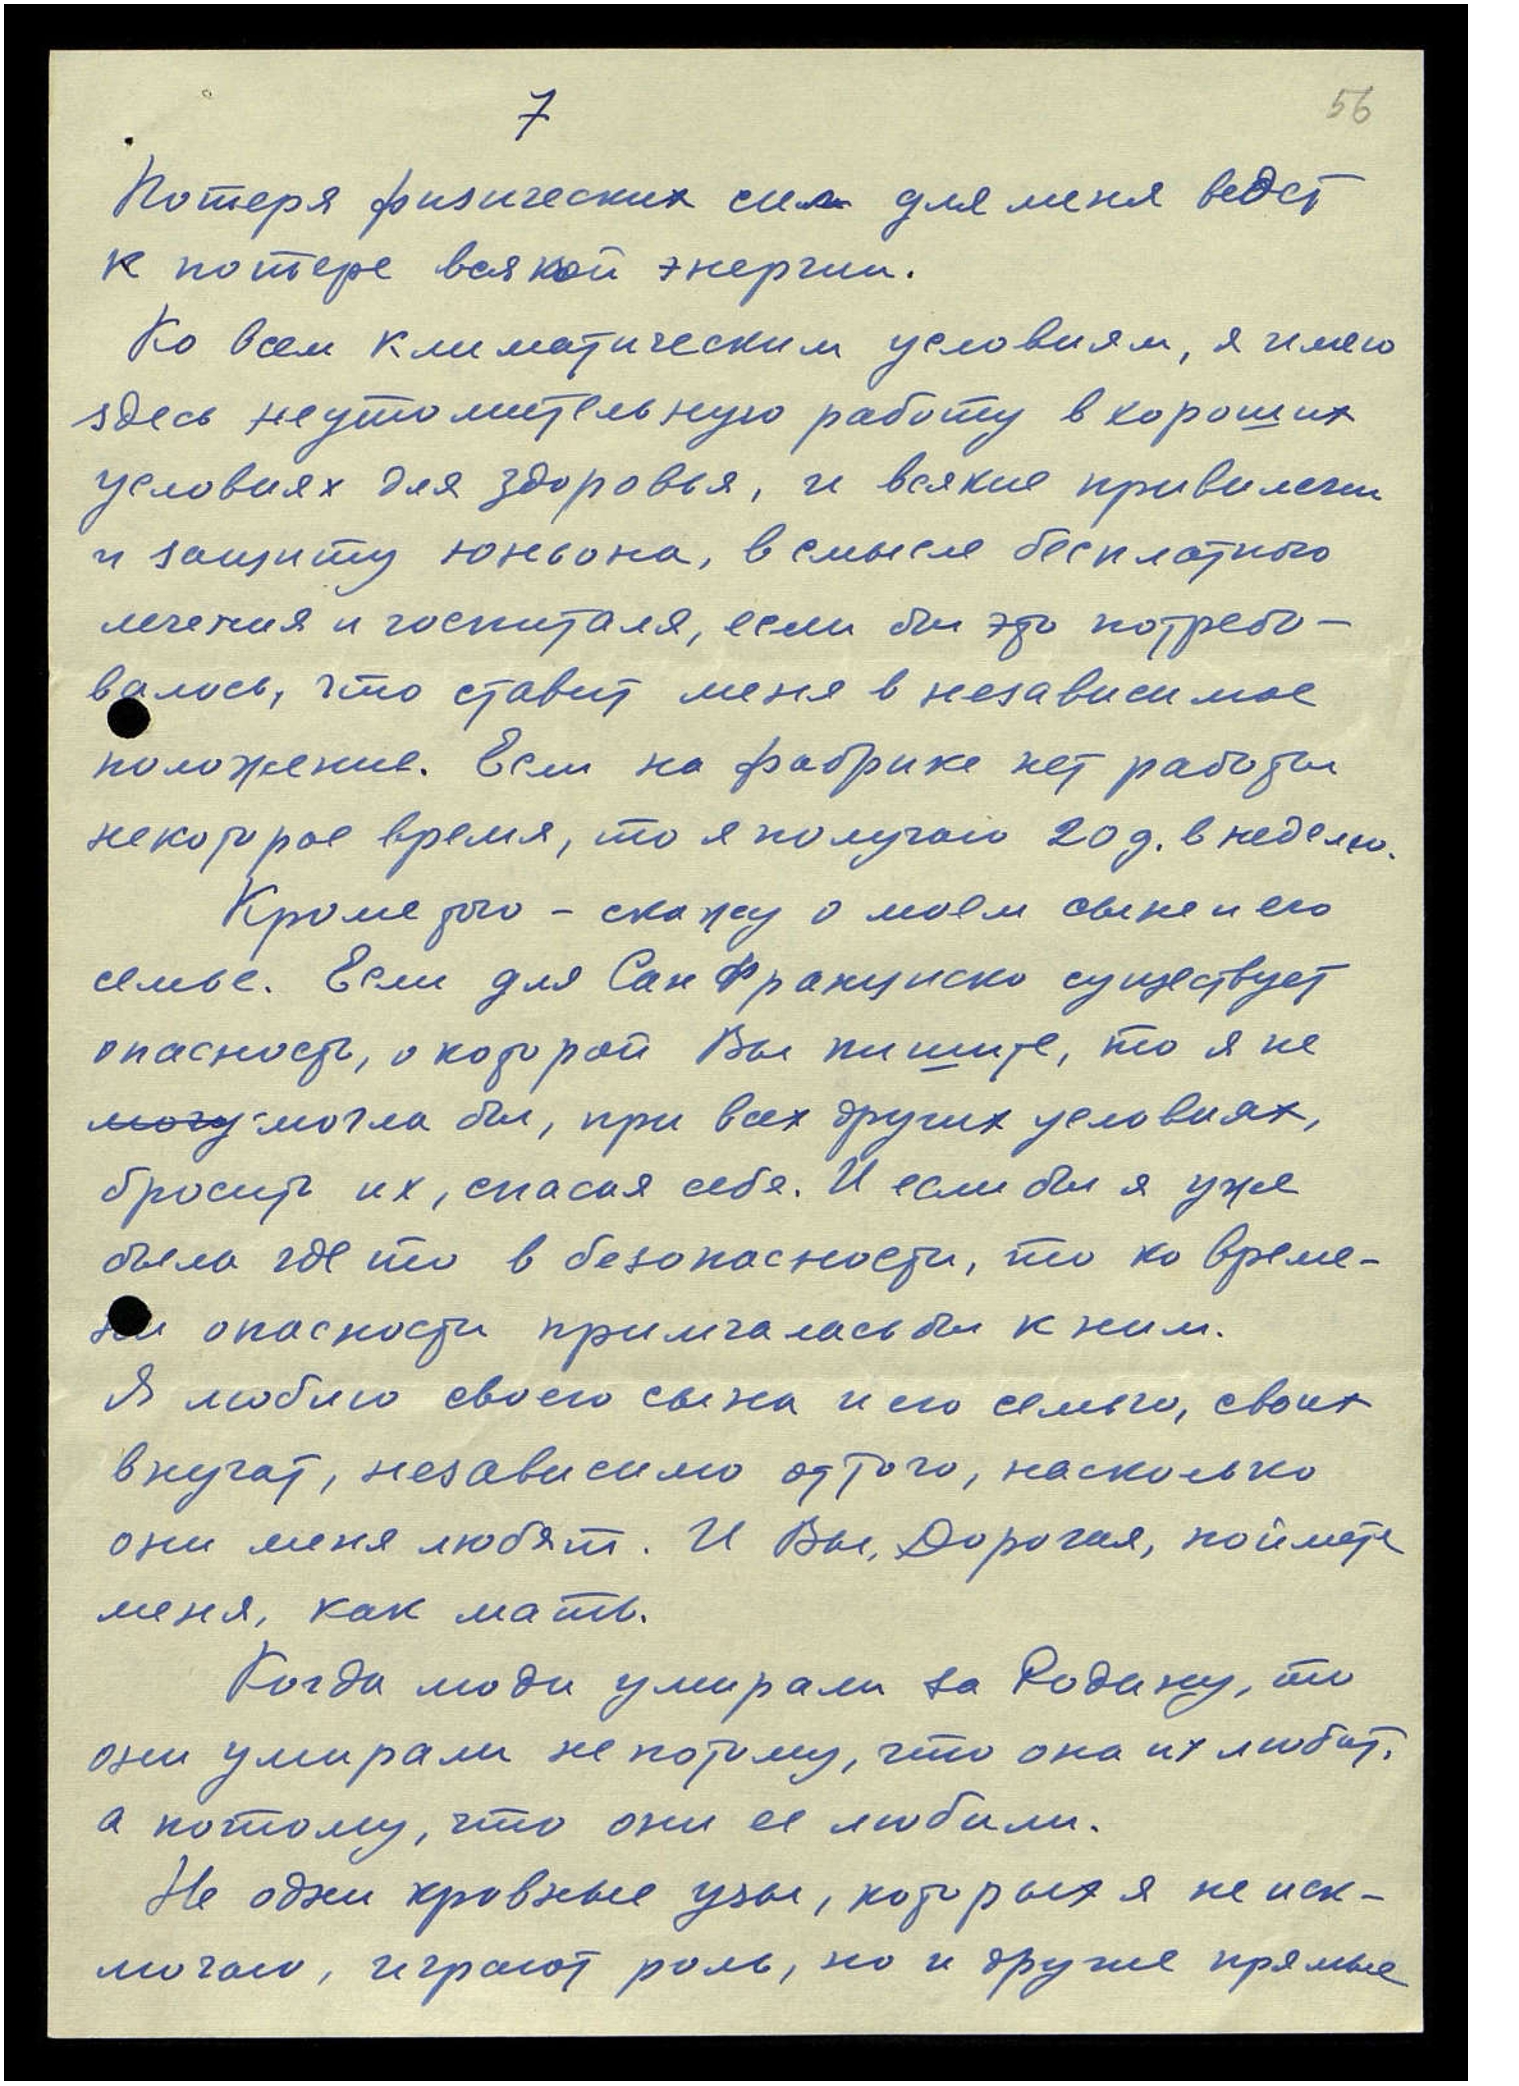 7
56
Потеря физических сил для меня ведет
к потере всякой энергии.
Ко всем климатическим условиям, я имею
здесь неутомительную работу в хороших
условиях для здоровья, и всякие привилегии
и защиту юньона, в смысле бесплатного
лечения и госпиталя, если бы это потребо-
валось, что ставит меня в независимое
положение. Если на фабрике нет работы
некоторое время, то я получаю 20 д. в неделю.
Кроме того – скажу о моем сыне и его
семье. Если для Сан Франциско существует
опасность, о которой Вы пишите, то я не
могу могла бы, при всех других условиях,
бросить их, спасая себя. И если бы я уже
была где то в безопасности, то ко време-
ни опасности примчалась бы к ним.
Я люблю своего сына и его семью, своих
внучат, независимо от того, насколько
они меня любят. И Вы, Дорогая, поймете
меня, как мать.
Когда люди умирали за Родину, то
они умирали не потому, что она их любит,
а потому, что они ее любили.
Не одни кровные узы, которых я не иск-
лючаю, играют роль, но и другие прямые